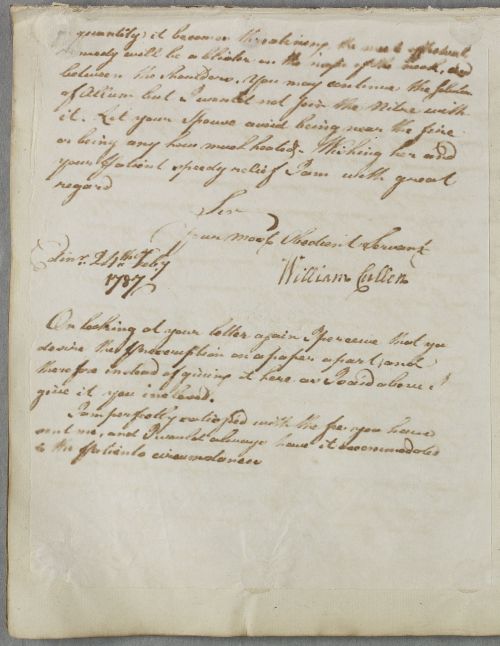 quantity it becomes threatening, the most effectual
remedy will be a blister on the nape of the neck, or
between the shoulders. You may continue the
of Allum but I would not join the Nitre with
it. Let your Spouse avoid being near the fire
or being any how much heated. Wishing her and
your Patient speedy relief I am with great
regard
Sir
Your most Obedient Servant
Edinr. 24th Feby
1787
William Cullen
On looking at your letter again I perceive that you
desire the prescription on a paper apart, and
therefore instead of giving it here as I said above I
give it you inclosed.
I am perfectly satisfied with the fee you have
sent me, and I would always have it accommodated
to the Patients circumstances